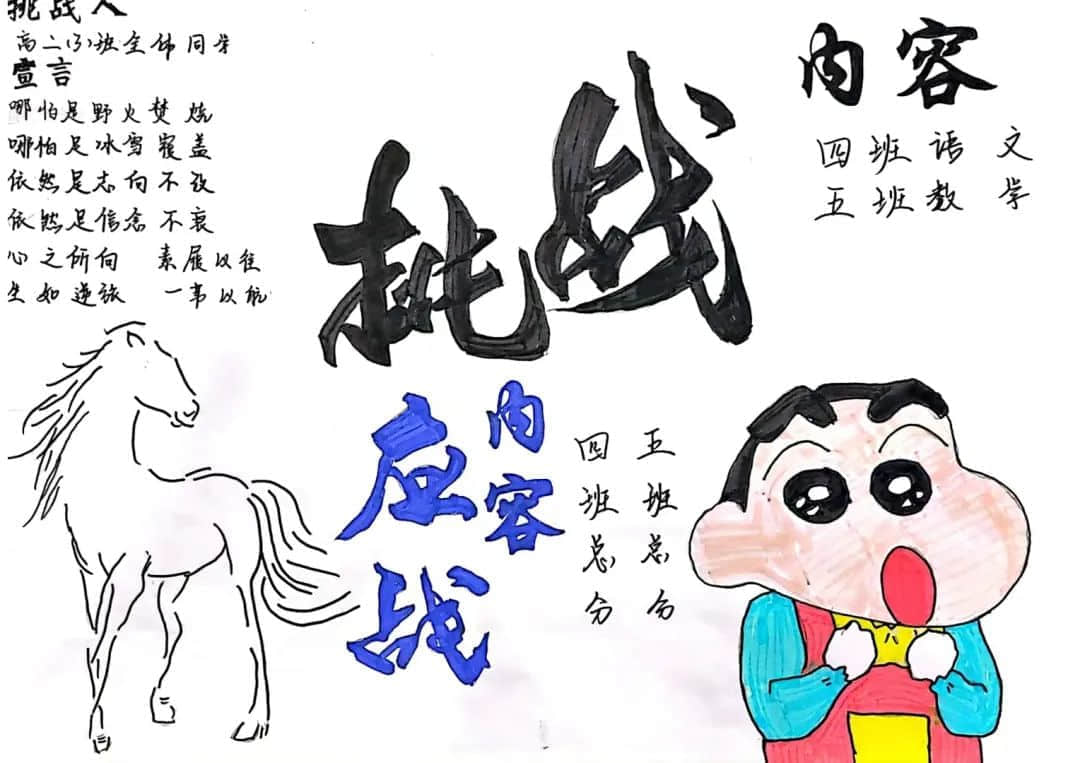 挑战人
高二(3)班全体同学
宣言
哪怕是野火焚烧
哪怕是冰雪覆盖
依然是志向不改
依然是信念不衰
心之所向 素履以往
生如逆旅 一苇以航
挑战
内容
四班语文
五班数学
应战
内容
五班总分
四班总分